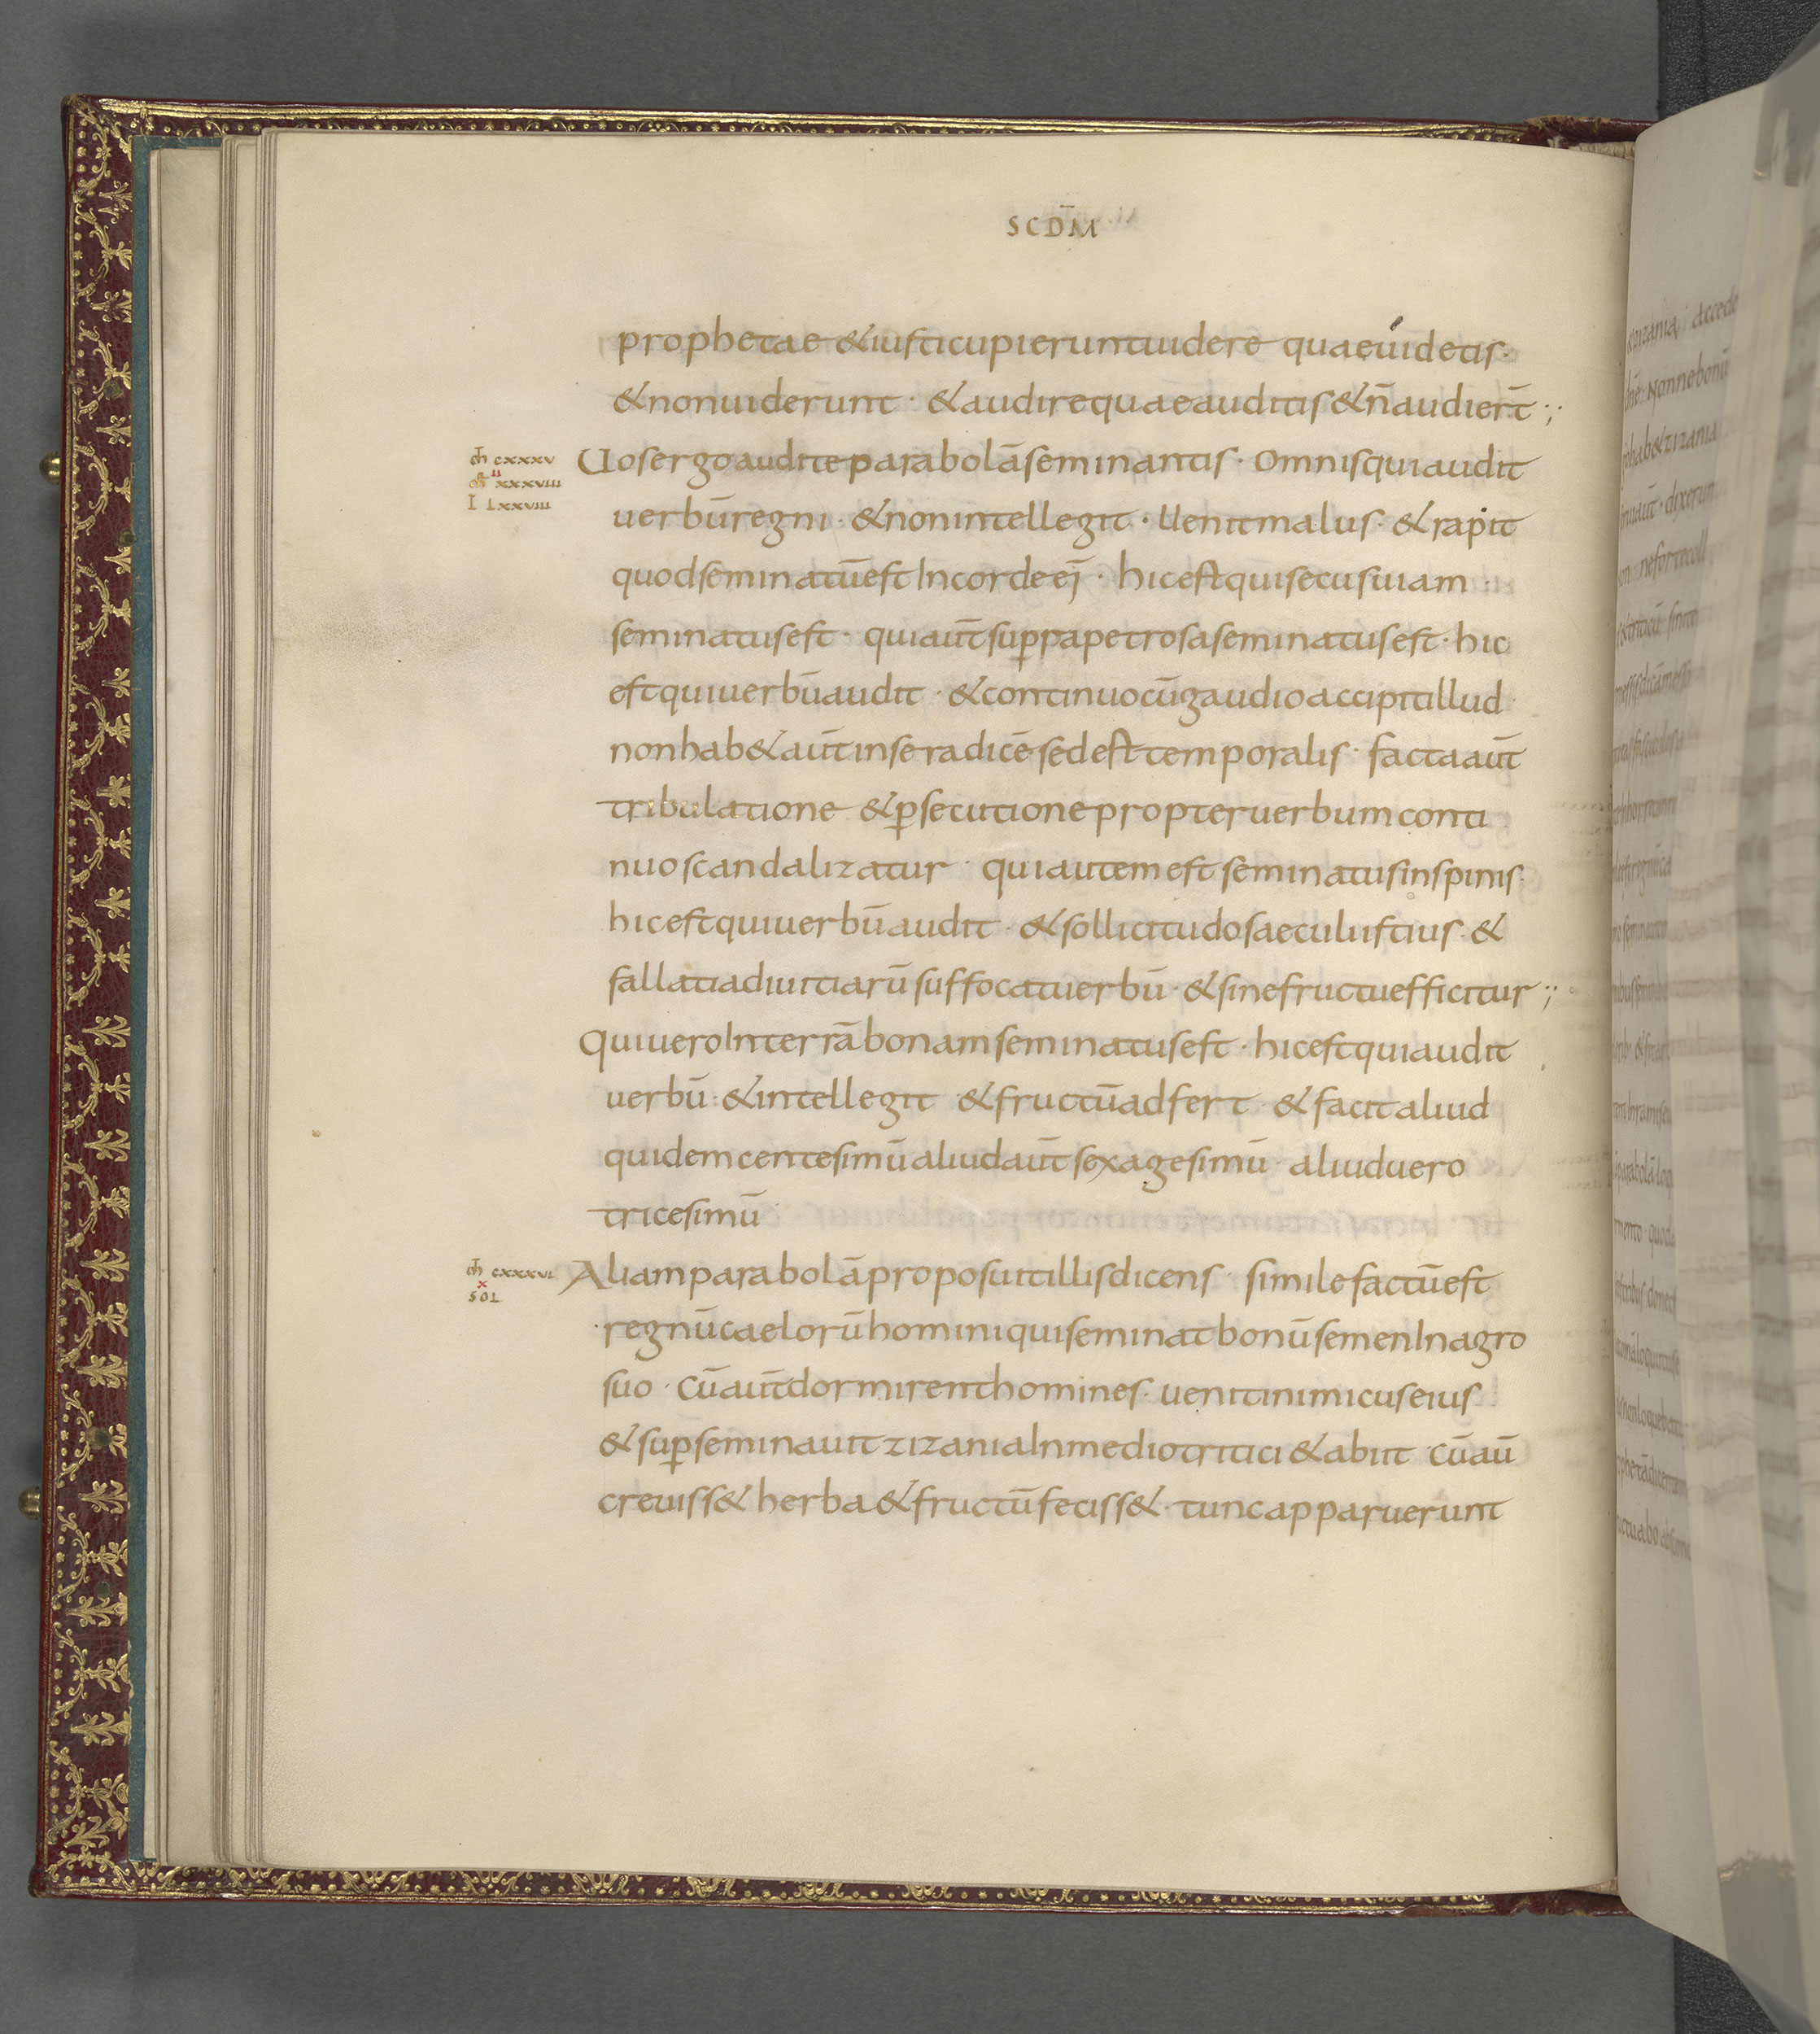 SCDM̄
prophetae & iusti cupierunt uidere quae uidetis·
& non uiderunt · & audire quae auditis & n̄ audiēr̄t ;
m̄ cxxxv
Uos ergo audite parabolā seminantis · Omnis qui audit
ii
xxxviii
L Lxxviii
uerbū regni · & non intellegit · Uenit malus · & rapit
quod seminatū est In corde ej · hic est qui secus uiam
seminatus est · qui aūt sup̱ra petrosa seminatus est · hic
est qui uerbū audit · & continuo cū gaudio accipit illud
non hab& aūt in se radicē sed est temporalis · facta aūt
tribulatione & p̱secutione propter uerbum conti
nuo scandalizatur · qui autem est seminatus in spinis·
hic est qui uerbū audit · & sollicitudo saeculi istius · &
fallatia diuitiarū suffocat uerbū · & sine fructu efficitur ;
Qui uero In terrā bonam seminatus est · hic est qui audit
uerbū · & intellegit & fructū adfert · & facit aliud
quidem centesimū aliud aūt sexagesimū · aliud uero
tricesimū
m̄ cxxxvi
Aliam parabolā proposuit illis dicens · simile factū est
x
SOL
regnū caelorū homini qui seminat bonū semen In agro
suo · cū aūt dormirent homines · uenit inimicus eius
& sup̱seminauit zizania In medio tritici & abiit cū aū
creuiss& herba & fructū feciss& · tunc apparuerunt